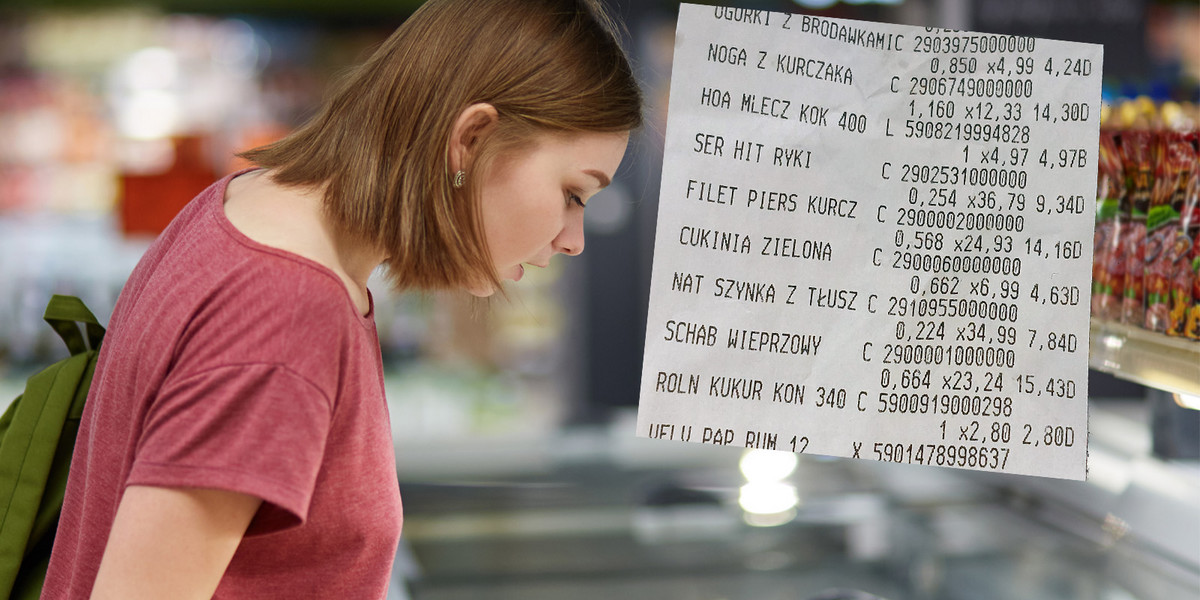 OGÓRKI Z BRODAWKAMIC 2903975000000
0,850 x4,99 4,24D
NOGA Z KURCZAKA C 2906749000000
1,160 x12,33 14,30D
HOA MLECZ KOK 400 L 5908219994828
1 x4,97 4,97B
SER HIT RYKI C 2902531000000
0,254 x36,79 9,34D
FILET PIERS KURCZ C 2900002000000
0,568 x24,93 14,16D
CUKINIA ZIELONA C 2900060000000
0,662 x6,99 4,63D
NAT SZYNKA Z TŁUSZ C 2910955000000
0,224 x34,99 7,84D
SCHAB WIEPRZOWY C 2900001000000
0,664 x23,24 15,43D
ROLN KUKUR KON 340 C 5900919000298
1 x2,80 2,80D
VELU PAP RUM 12 X 5901478998637